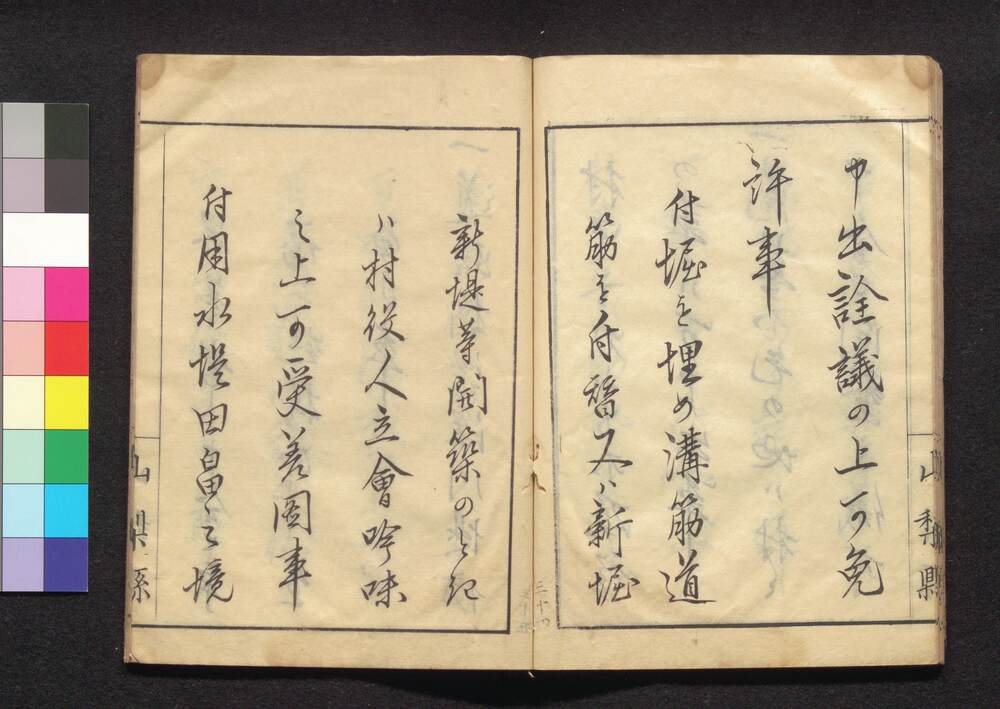 申出詮議の上可免
許事
付堀を埋め溝筋道
筋を付替又ハ新堀
新堤等開築のとき
ハ村役人立會吟味
之上可受差図事
付用水堤田畠之境
山梨縣
山梨縣